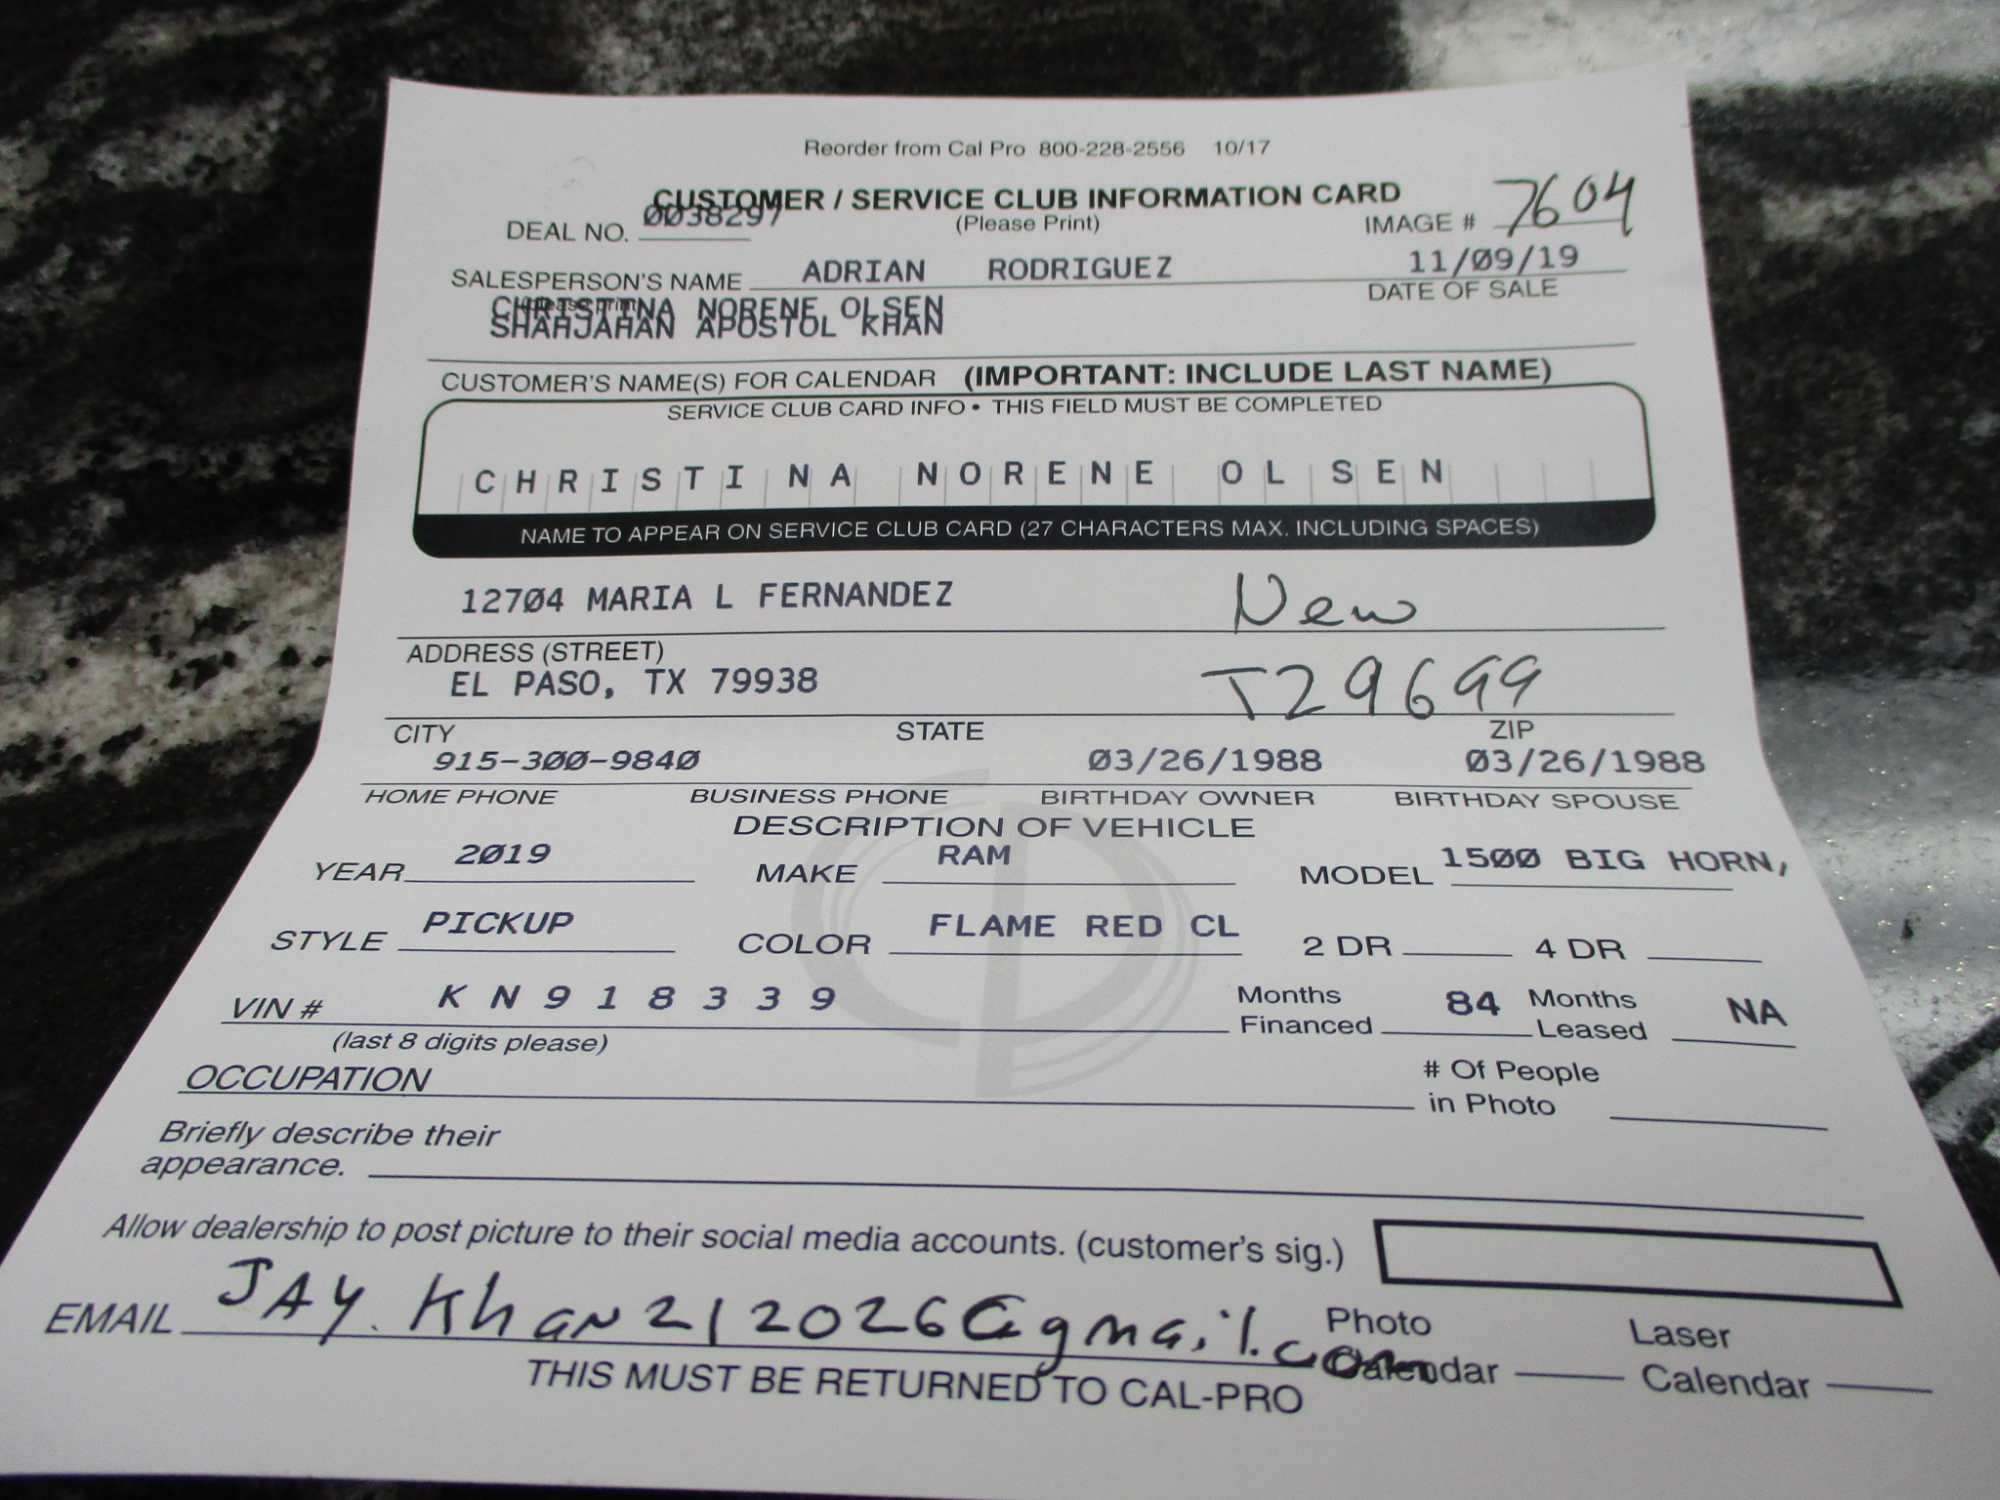 Reorder from Cal Pro 800-228-2556 10/17
CUSTOMER / SERVICE CLUB INFORMATION CARD
DEAL NO. 0038297 (Please Print) IMAGE # 7604
SALESPERSON'S NAME ADRIAN RODRIGUEZ 11/09/19
(please print) DATE OF SALE
CHRISTINA NORENE OLSEN
SHAHJAHAN APOSTOL KHAN
CUSTOMER'S NAME(S) FOR CALENDAR (IMPORTANT: INCLUDE LAST NAME)
SERVICE CLUB CARD INFO • THIS FIELD MUST BE COMPLETED
CHRISTINA NORENE OLSEN
NAME TO APPEAR ON SERVICE CLUB CARD (27 CHARACTERS MAX. INCLUDING SPACES)
12704 MARIA L FERNANDEZ New
ADDRESS (STREET)
EL PASO, TX 79938 T29699
CITY STATE ZIP
915-300-9840 03/26/1988 03/26/1988
HOME PHONE BUSINESS PHONE BIRTHDAY OWNER BIRTHDAY SPOUSE
DESCRIPTION OF VEHICLE
YEAR 2019 MAKE RAM MODEL 1500 BIG HORN,
STYLE PICKUP COLOR FLAME RED CL 2 DR 4 DR
VIN # K N 9 1 8 3 3 9 Months Financed 84 Months Leased NA
(last 8 digits please)
OCCUPATION # Of People in Photo
Briefly describe their
appearance.
Allow dealership to post picture to their social media accounts. (customer's sig.)
EMAIL JAY.Khan212026@gmail.com Photo Calendar Laser Calendar
THIS MUST BE RETURNED TO CAL-PRO